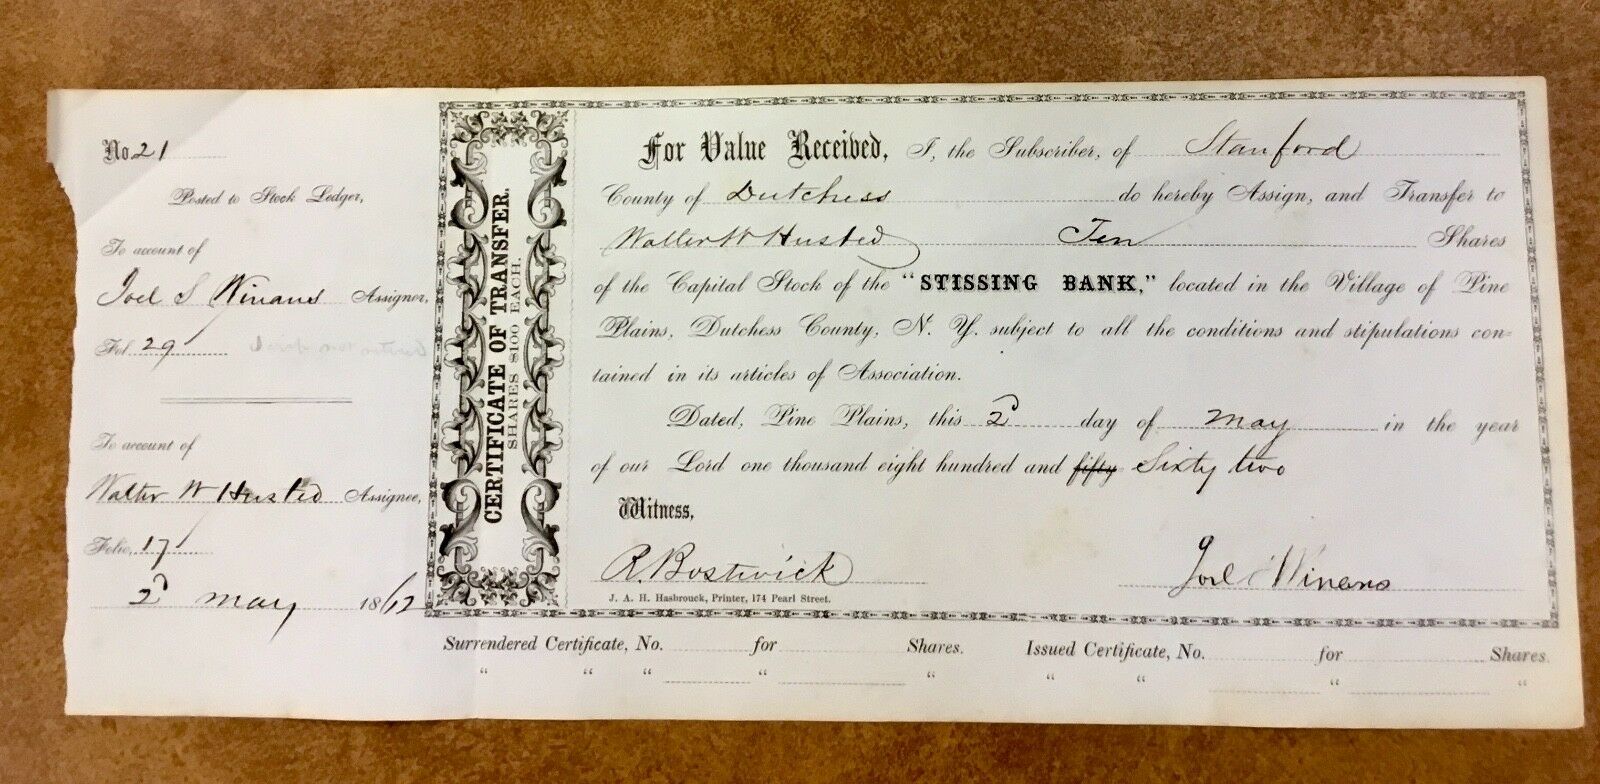 No. 21
Posted to Stock Ledger,
To account of
Joel S Winans Assigner,
Fol. 29
To account of
Walter W Husted Assignee,
Folio, 17
2d may 18/62
CERTIFICATE OF TRANSFER.
SHARES $100 EACH.
For Value Received, I, the Subscriber, of Stanford
County of Dutchess do hereby Assign, and Transfer to
Walter W Husted Ten Shares
of the Capital Stock of the "STISSING BANK," located in the Village of Pine
Plains, Dutchess County, N. Y. subject to all the conditions and stipulations con-
tained in its articles of Association.
Dated, Pine Plains, this 2d day of may in the year
of our Lord one thousand eight hundred and fifty Sixty two
Witness,
R. Bostwick Joel Winans
J. A. H. Hasbrouck, Printer, 174 Pearl Street.
Surrendered Certificate, No. for Shares. Issued Certificate, No. for Shares.
" " " " " " " " "